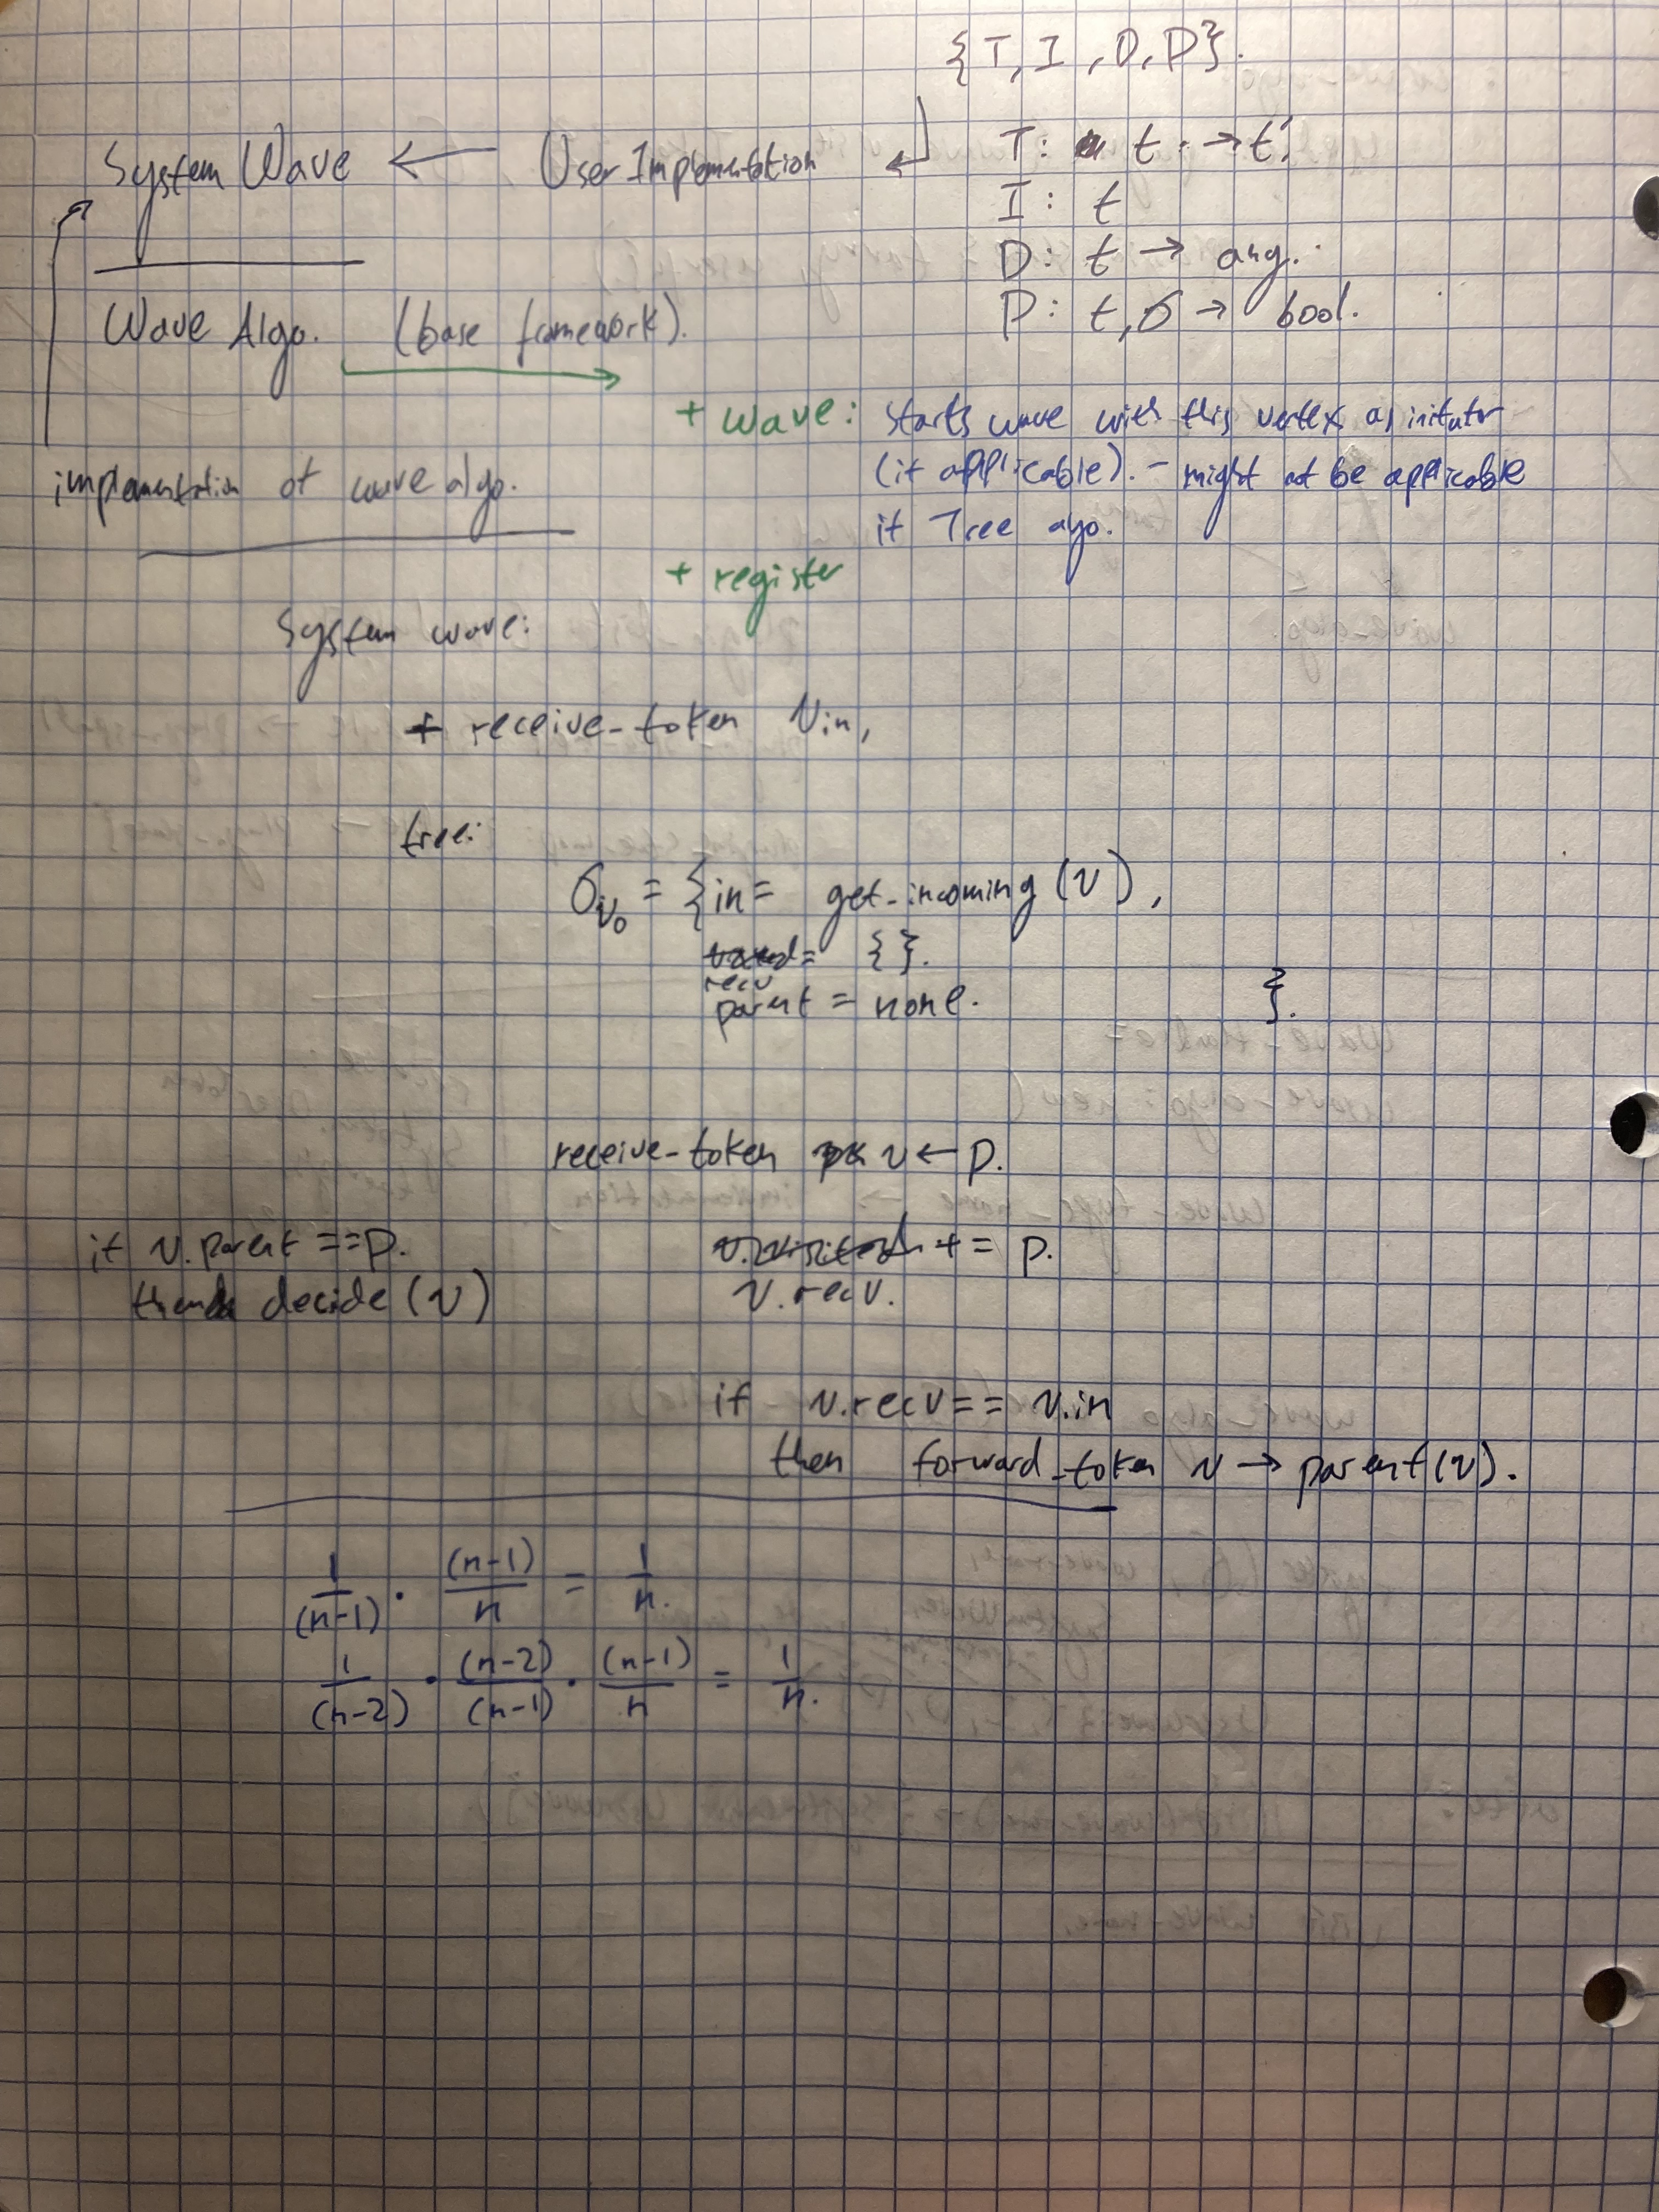 {T, I, D, P}.
System Wave ← User Implementation
T: t → t'
I: t
D: t → any.
P: t, σ → bool.
Wave Algo. (base framework).
+ wave: starts wave with this vertex as initator
(if applicable). - might not be applicable
if Tree algo.
implementation of wave algo.
+ register
System wave:
+ receive-token Vin,
tree:
σv₀ = {in = get-incoming (v),
recv = { }.
parent = none. }.
receive-token v ← p.
if v.parent == p.
then decide (v)
v.visited += p.
v.recv.
if v.recv == v.in
then forward_token v → parent(v).
1/(n-1) · (n-1)/n = 1/n.
1/(n-2) · (n-2)/(n-1) · (n-1)/n = 1/n.